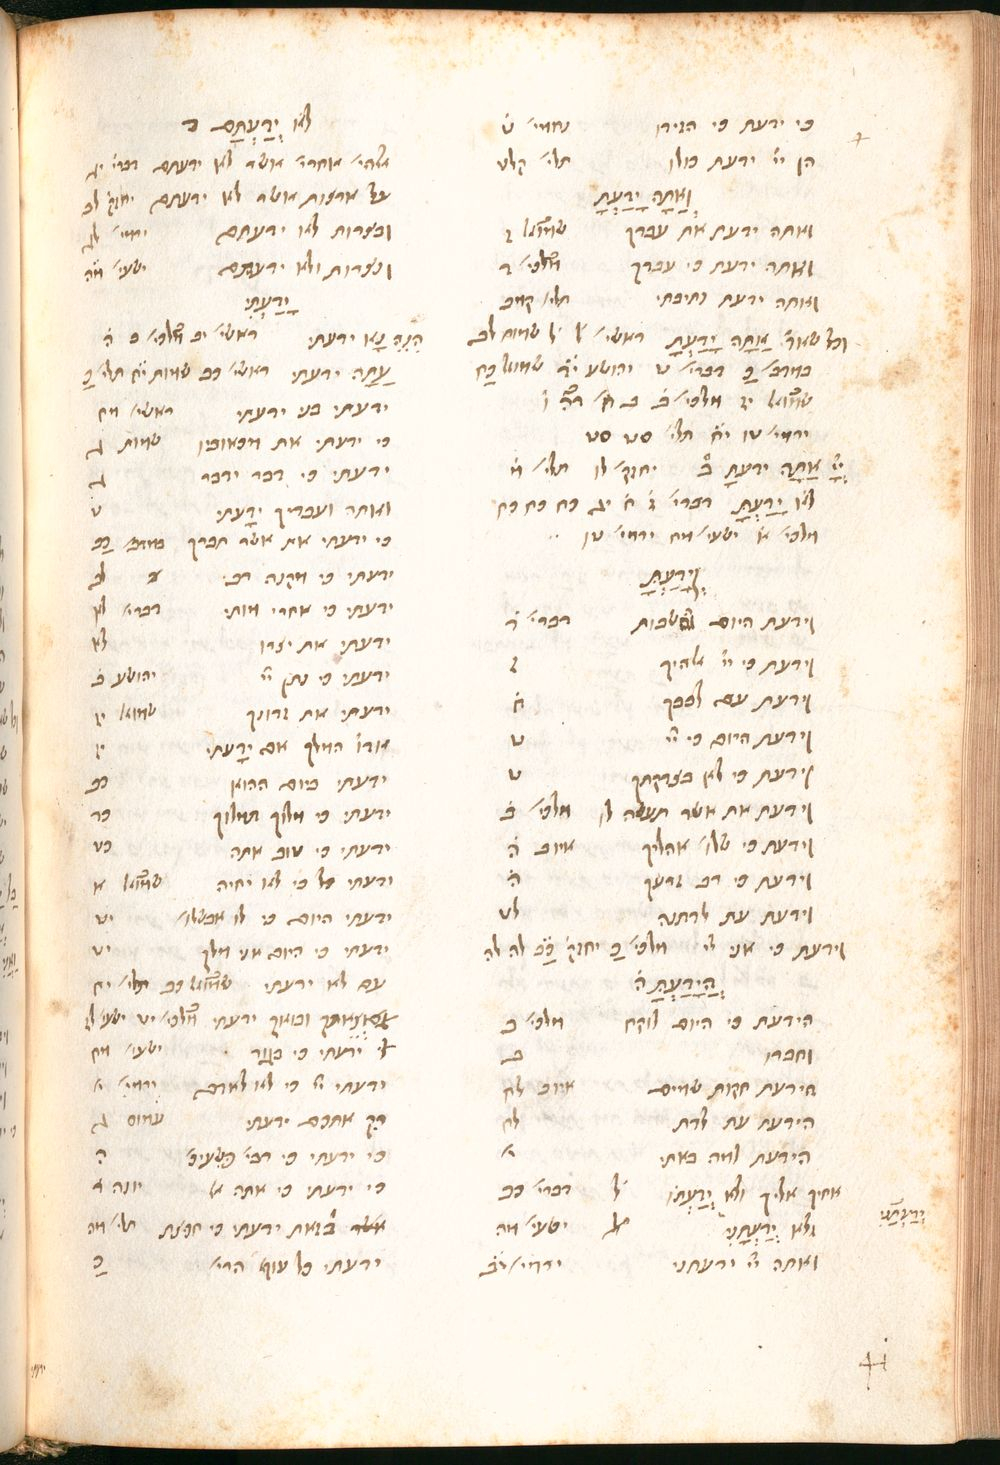 כי ידעת כי הגידו נחמי׳ ט
הן יי׳ ידעת כולו תלי׳ קלט
וְאַתָּה יָדַעְתָּ
ואתה ידעת את עבדך שמואל ז
ואתה ידעת כי עבדך
ואתה ידעת נתיבתי תלי׳ קמב
וכל שאר אַתָּה יָדַעְתָּ ראשי׳ ל ל שמות לב
במדב׳ כ דברי׳ ט יהושע יד שמואל כח
ירמי׳ טו יח תלי׳ סט סט
יי׳ אַתָּה ידעתָ ב יחזק׳ לו תלי׳
לא יָדַעְתָּ דברי׳ ח יג כח כח כח
מלכי׳ א ישעי׳ מח ירמי׳ טו
וְיָדַעְתָּ
וידעת היום והשבות דברי׳ ד
וידעת כי יי׳ אלהיך ז
וידעת עם לבבך ח
וידעת היום כי יי׳ ט
וידעת כי לא בצדקתך ט
וידעת את אשר תעשה לו מלכי׳ ב
וידעת כי שלו׳ אהליך איוב ה
וידעת כי רב זרעך ה
וידעת עת לדתנה לט
וידעת כי אני יי׳ מלכי׳ כ יחזק׳ כב לה לה
הֲיָדַעְתָּ ה
הידעת כי היום לוקח מלכי׳ ב
וחברו ב
הידעת חקות שמים איוב לח
הידעת עת לדת לט
הידעת למה באתי י
אחיך אליך ולא יְדַעְתּוֹ ל דברי׳ כב
ולא יְדַעְתָּנִי ישעי׳ מה
ואתה יי׳ ידעתני ירמי׳ יב
יְדַעְתָּנִי
לא יְדַעְתֶּם
אלהי׳ אחרי׳ אשר לא ידעתם דברי׳ יג
על ארצות אשר לא ידעתם יחזק׳ לב
ובצורות לא ידעתם ירמי׳ לג
ונצורות ולא ידעתם ישעי׳ מח
יָדַעְתִּי
הִנֵּה נָא ידעתי ראשי׳ יב מלכי׳ ב ה
עַתָּה ידעתי ראשי׳ כב שמות יח תלי׳ כ
ידעתי בני ידעתי ראשי׳ מח
כי ידעתי את מכאוביו שמות ג
ידעתי כי דבר ידבר ד
ואתה ועבדיך ידעתי ט
כי ידעתי את אשר תברך במדב׳ כב
ידעתי כי מקנה רב לב
ידעתי כי אחרי מותי דברי׳ לא
ידעתי את יצרו לא
ידעתי כי נתן יי׳ יהושע ב
ידעתי את זדונך שמוא׳ יז
אדו׳ המלך אם ידעתי יז
ידעתי ביום ההוא כב
ידעתי כי מלוך תמלוך כד
ידעתי כי טוב אתה כט
ידעתי היום כי לו אבשלו׳ יט
ידעתי כי היום אני מלך יט
עם לא ידעתי שמואל כב תלי׳ יח
וצאתך ובואך ידעתי מלכי׳ יט ישעי׳ לז
ידעתי כי בגוד ישעי׳ מח
ידעתי יי׳ כי לא לאדם ירמי׳ י
רק אתכם ידעתי עמוס ג
כי ידעתי כי רבי׳ פשעיכ׳ ה
כי ידעתי כי אתה אל יונה ד
בזאת ידעתי כי חפצת תלי׳ מא
ידעתי כל עוף הרי׳ נ